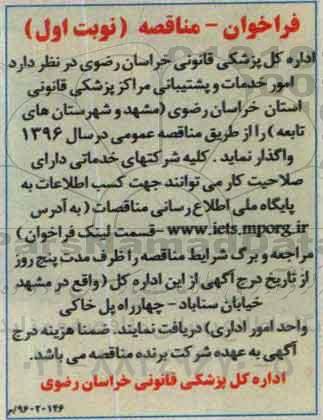 فراخوان - مناقصه (نوبت اول)
اداره کل پزشکی قانونی خراسان رضوی در نظر دارد
امور خدمات و پشتیبانی مراکز پزشکی قانونی
استان خراسان رضوی (مشهد و شهرستان های
تابعه) را از طریق مناقصه عمومی در سال ۱۳۹۶
واگذار نماید . کلیه شرکتهای خدماتی دارای
صلاحیت کار می توانند جهت کسب اطلاعات به
پایگاه ملی اطلاع رسانی مناقصات (به آدرس
www.iets.mporg.ir -قسمت لینک فراخوان)
مراجعه و برگ شرایط مناقصه را ظرف مدت پنج روز
از تاریخ درج آگهی از این اداره کل (واقع در مشهد
خیابان سناباد - چهارراه پل خاکی
واحد امور اداری) دریافت نمایند. ضمنا هزینه درج
آگهی به عهده شرکت برنده مناقصه می باشد.
اداره کل پزشکی قانونی خراسان رضوی
۹۶۰۲۰۱۴۶/م